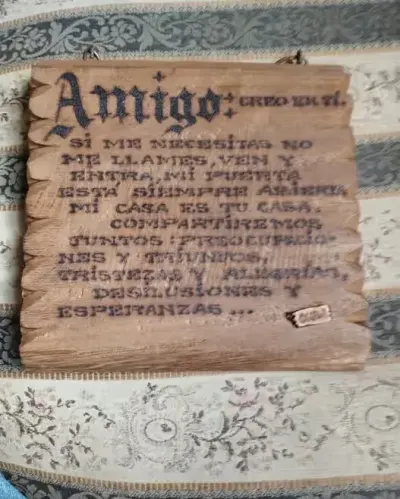 Amigo: CREO EN TI.
SI ME NECESITAS NO
ME LLAMES, VEN Y
ENTRA, MI PUERTA
ESTA SIEMPRE ABIERTA
MI CASA ES TU CASA.
COMPARTIREMOS
JUNTOS: PREOCUPACIO-
NES Y TRIUNFOS,
TRISTEZAS Y ALEGRÍAS,
DESILUSIONES Y
ESPERANZAS ...